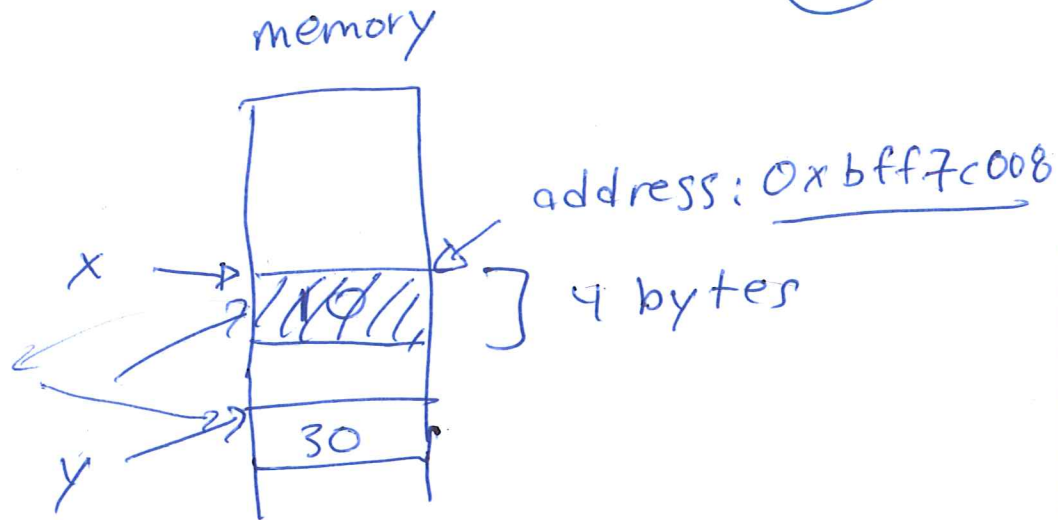 memory
address: 0xbff7c008
x
10
4 bytes
30
y